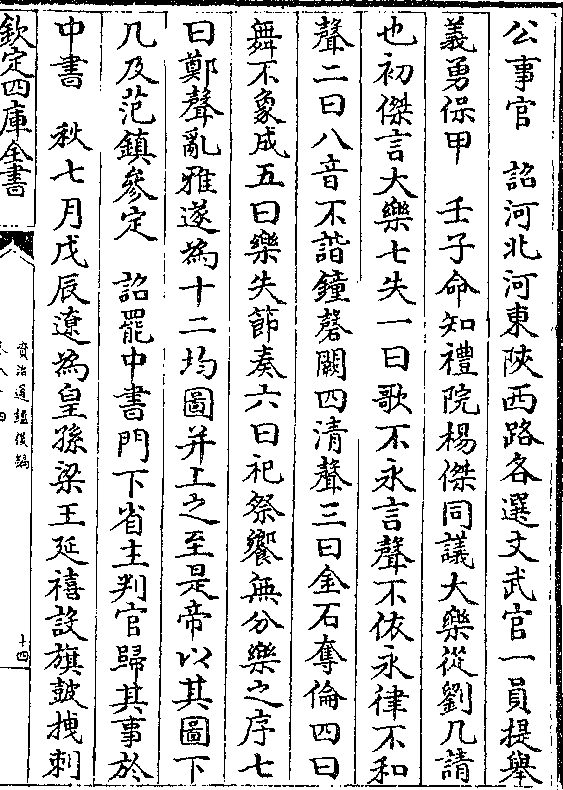 公事官　詔河北河東陜西路各選文武官一員提舉
義勇保甲　壬子命知禮院楊傑同議大樂從劉几請
也初傑言大樂七失一曰歌不永言聲不依永律不和
聲二曰八音不諧鐘磬闕四清聲三曰金石奪倫四曰
舞不象成五曰樂失節奏六曰祀祭饗無分樂之序七
曰鄭聲亂雅遂為十二均圖并上之至是帝以其圖下
几及范鎮參定　詔罷中書門下省主判官歸其事於
中書　秋七月戊辰遼為皇孫梁王延禧設旗鼓拽剌
欽定四庫全書
資治通鑑後編
十四